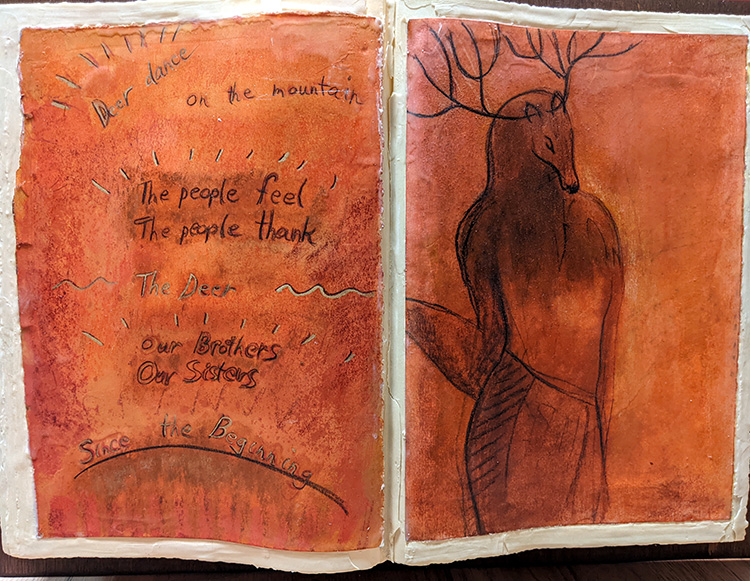 Deer dance
on the mountain
The people feel
The people thank
The Deer
our Brothers
Our Sisters
Since the Beginning